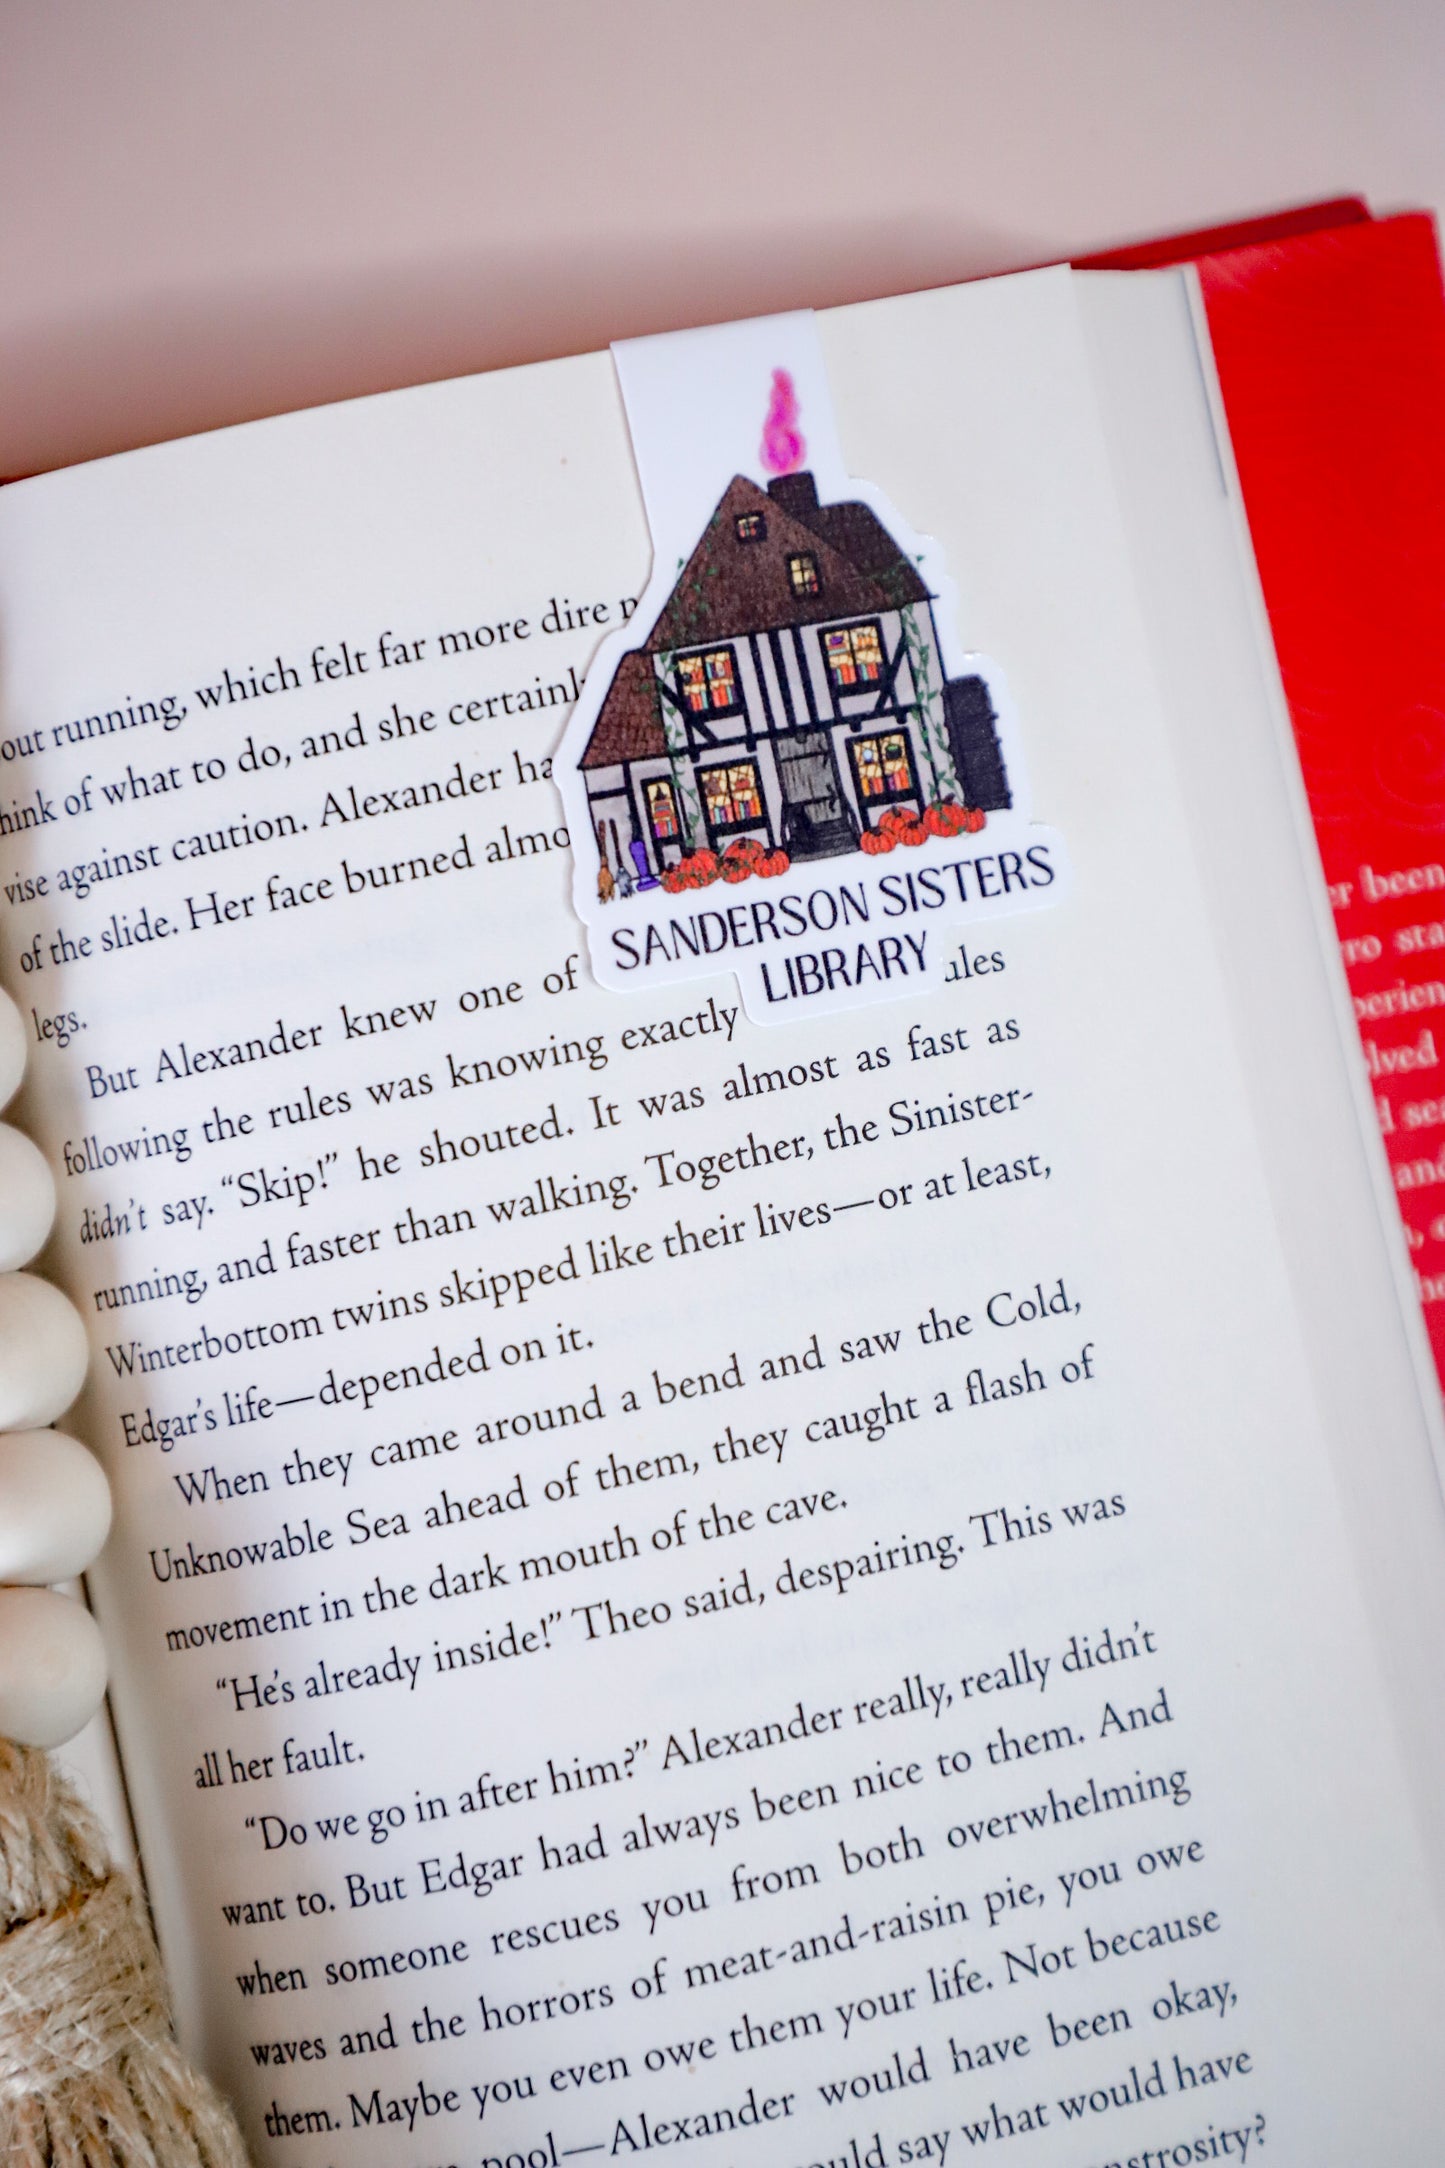 out running, which felt far more dire
of what to do, and she certainl
vise against caution. Alexander ha
of the slide. Her face burned almo
legs.
SANDERSON SISTERS
LIBRARY
But Alexander knew one of
following the rules was knowing exactly
didn't say. "Skip!" he shouted. It was almost as fast as
running, and faster than walking. Together, the Sinister-
Winterbottom twins skipped like their lives—or at least,
Edgar's life—depended on it.
When they came around a bend and saw the Cold,
Unknowable Sea ahead of them, they caught a flash of
movement in the dark mouth of the cave.
"He's already inside!" Theo said, despairing. This was
all her fault.
"Do we go in after him?" Alexander really, really didn't
want to. But Edgar had always been nice to them. And
when someone rescues you from both overwhelming
waves and the horrors of meat-and-raisin pie, you owe
them. Maybe you even owe them your life. Not because
pool—Alexander would have been okay,
say what would have
er been
ro sta
perien
lved
and